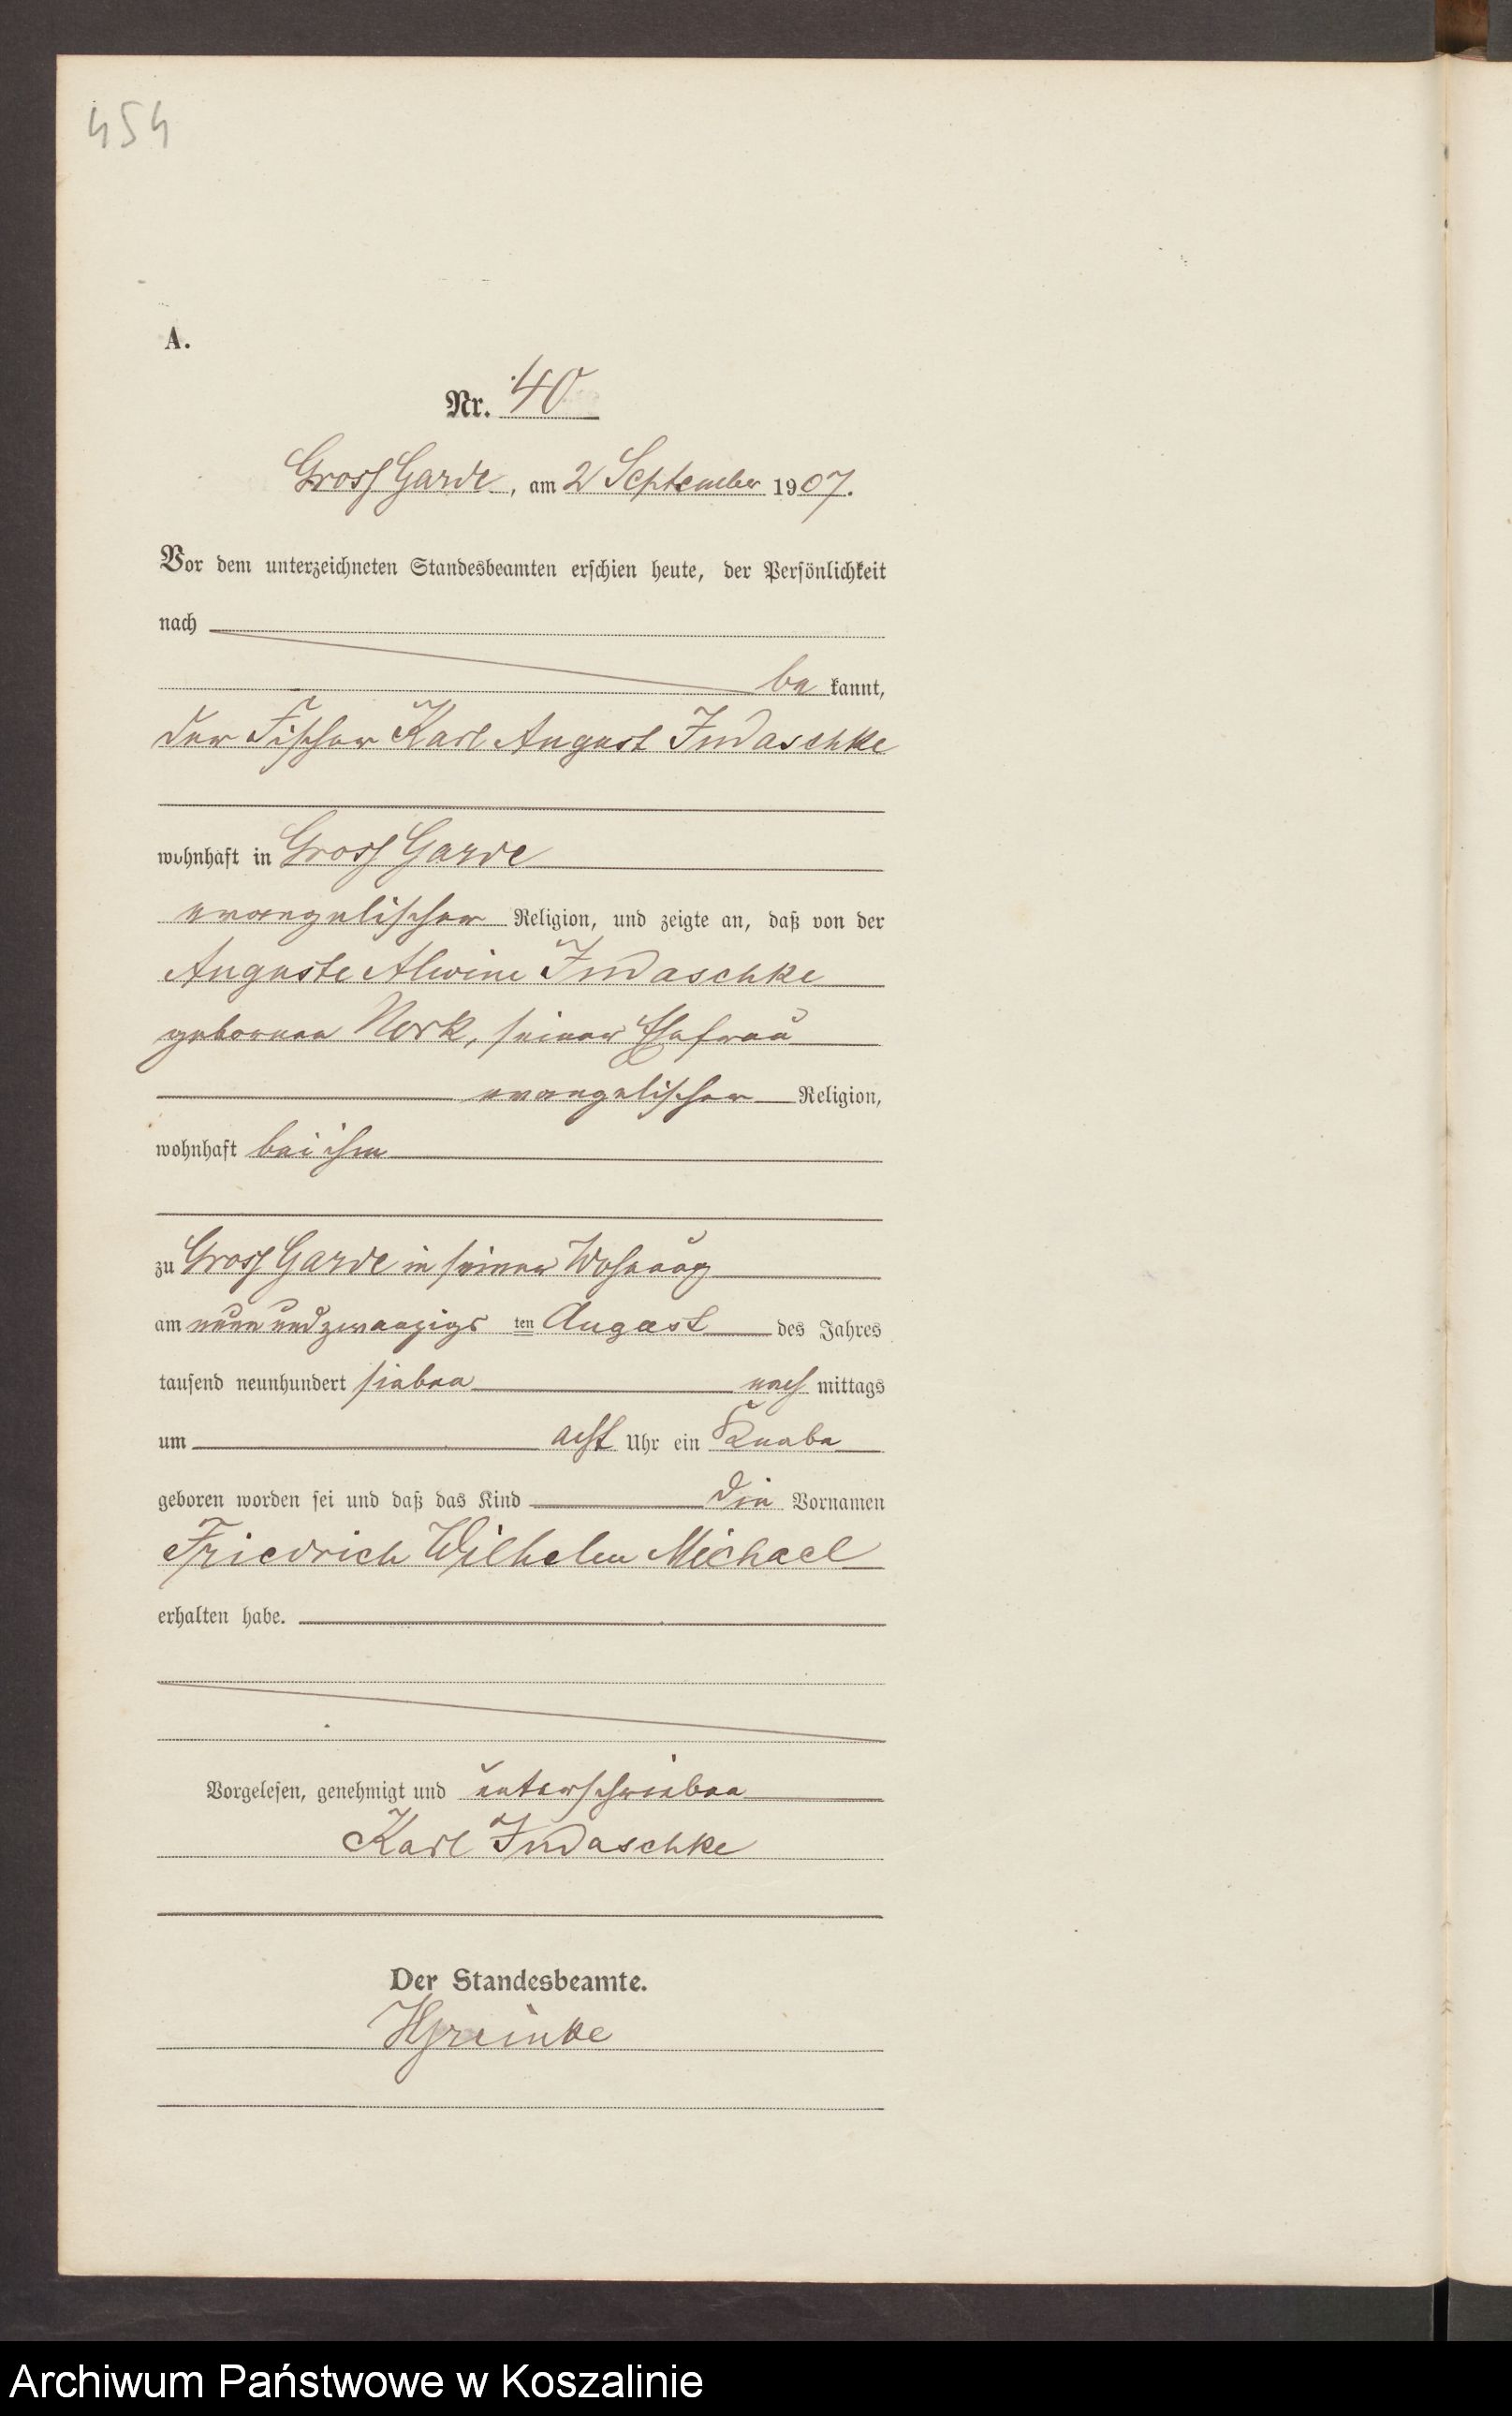 454
A.
Nr. 40
Gross Garde, am 2 September 1907.
Vor dem unterzeichneten Standesbeamten erschien heute, der Persönlichkeit
nach
be kannt,
der Fischer Karl August Judaschke
wohnhaft in Gross Garde
evangelischer Religion, und zeigte an, daß von der
Auguste Alwine Judaschke
geborenen Nork, seiner Ehefrau
evangelischer Religion,
wohnhaft bei ihm
zu Gross Garde in seiner Wohnung
am neun und zwanzigs ten August des Jahres
tausend neunhundert sieben nach mittags
um acht Uhr ein Knabe
geboren worden sei und daß das Kind die Vornamen
Friedrich Wilhelm Michael
erhalten habe.
Vorgelesen, genehmigt und unterschrieben
Karl Judaschke
Der Standesbeamte.
Archiwum Państwowe w Koszalinie